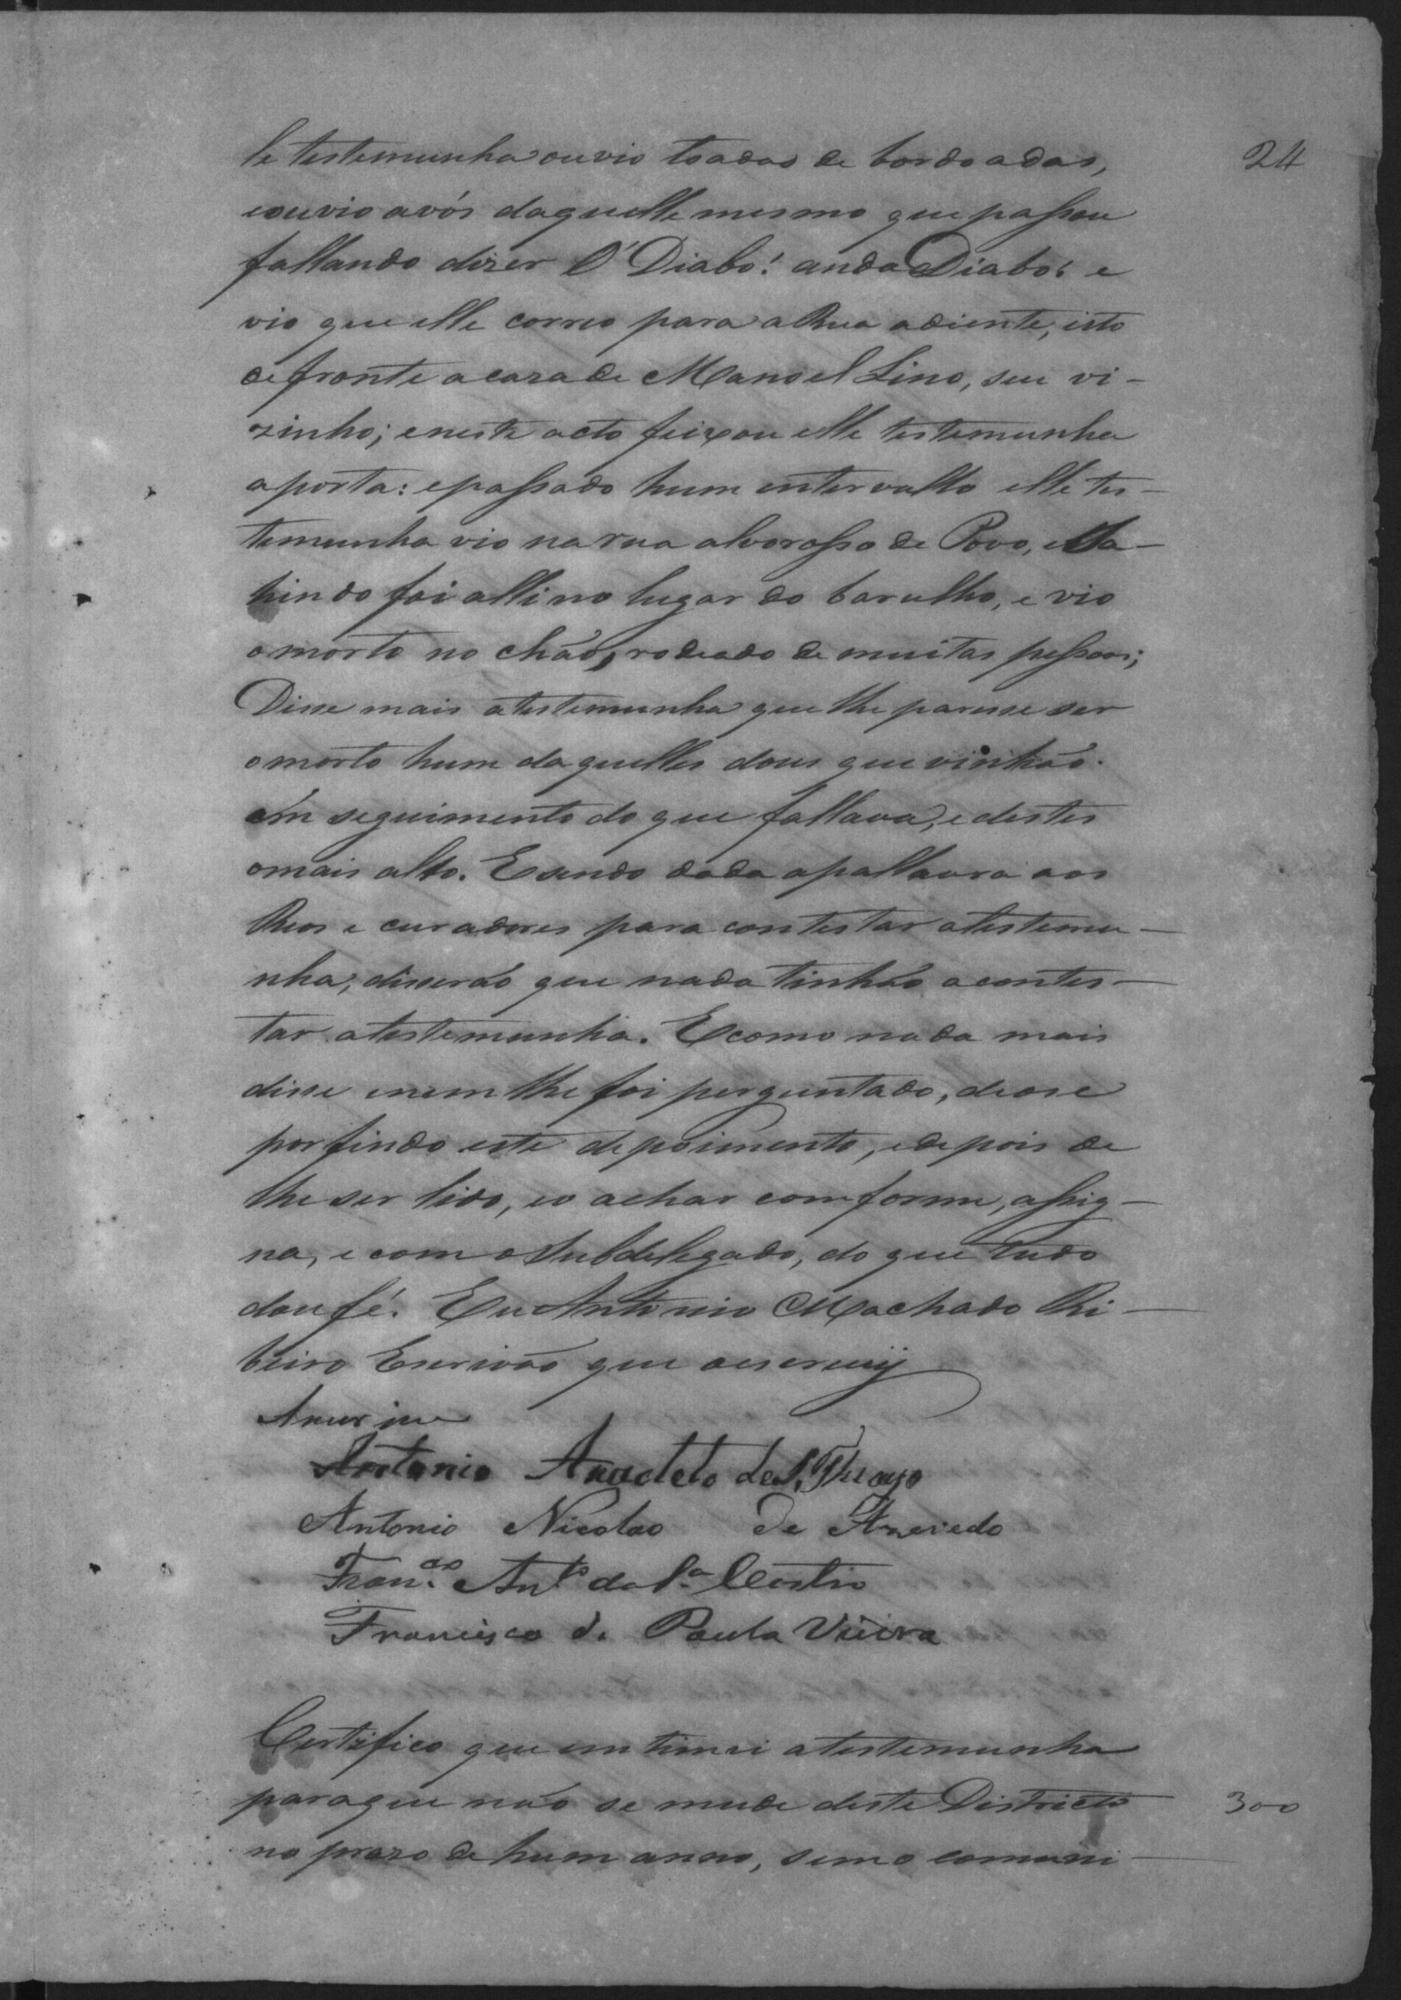 24
le testemunha ouvio toadas de bordoadas,
e ouvio a vós daquelle mesmo que passou
fallando dizer O' Diabo! anda Diabo! e
vio que elle correo para a Rua adiente, isto
defronte a caza de Manoel Lino, seu vi-
zinho; e neste acto feixou elle testemunha
a porta: e passado hum entervallo elle tes-
temunha vio na rua alvorosso de Povo, e Sa-
hindo foi alli no lugar do barulho, e vio
o morto no chão, rodeado de muitas pessoas;
Disse mais a testemunha que lhe paresse ser
o morto hum daquelles dous que vinhão
em seguimento do que fallava, e destes
o mais alto. E sendo dada a pallavra aos
Reos e curadores para contestar a testemu-
nha, disserão que nada tinhão a contes-
tar a testemunha. E como nada mais
disse e nem lhe foi perguntado, deose
por findo este depoimento, e depois de
lhe ser lido, e o achar comforme, assig-
na, e com o Subdelegado, do que tudo
dou fé. Eu Antonio Machado Ri-
beiro Escrivão que o escrevÿ
Antonio Anacleto de S. Thiago
Antonio Nicolao de Azevedo
Fran.co Anto da S.a
Francisco de Paula Vieira
Certifico que emtimei a testemunha
para que não se mude deste Districto
300
no prazo de hum anno, sem o comuni-